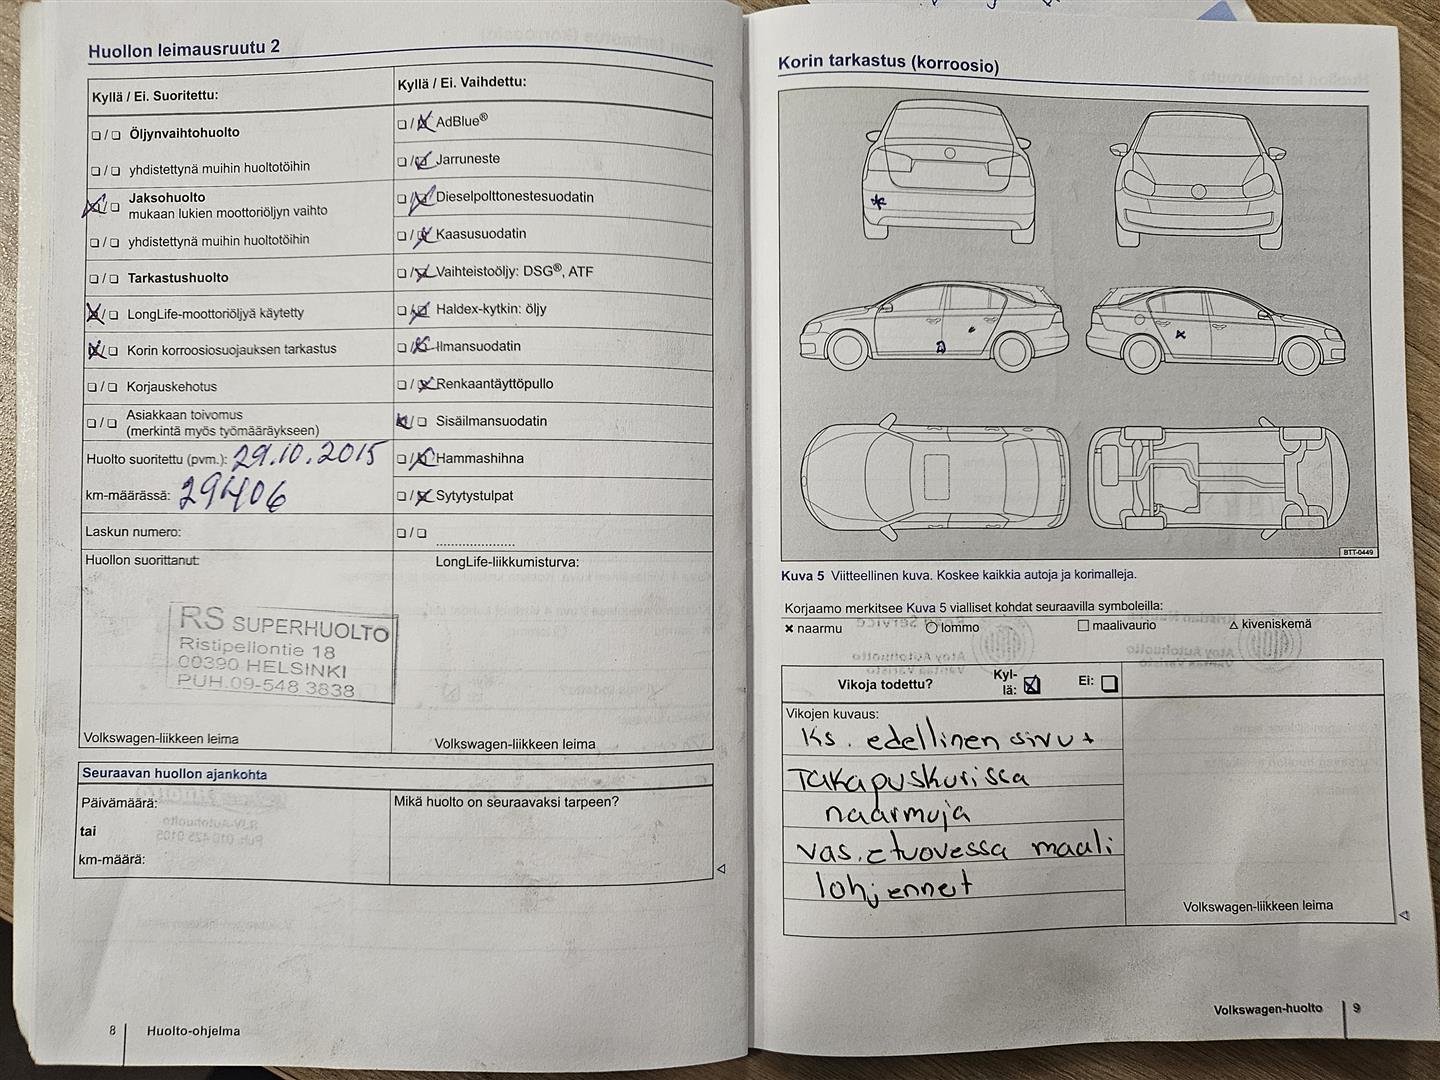 Huollon leimausruutu 2
Kyllä / Ei. Suoritettu:
❏ / ❏ Öljynvaihtohuolto
❏ / ❏ yhdistettynä muihin huoltotöihin
❏ / ❏ Jaksohuolto
mukaan lukien moottoriöljyn vaihto
❏ / ❏ yhdistettynä muihin huoltotöihin
❏ / ❏ Tarkastushuolto
❏ / ❏ LongLife-moottoriöljyä käytetty
❏ / ❏ Korin korroosiosuojauksen tarkastus
❏ / ❏ Korjauskehotus
❏ / ❏ Asiakkaan toivomus
(merkintä myös työmääräykseen)
Huolto suoritettu (pvm.): 29.10.2015
km-määrässä: 29406
Laskun numero:
Huollon suorittanut:
RS SUPERHUOLTO
Ristipellontie 18
00390 HELSINKI
PUH.09-548 3838
Volkswagen-liikkeen leima
Kyllä / Ei. Vaihdettu:
❏ / ❏ AdBlue®
❏ / ❏ Jarruneste
❏ / ❏ Dieselpolttonestesuodatin
❏ / ❏ Kaasusuodatin
❏ / ❏ Vaihteistoöljy: DSG®, ATF
❏ / ❏ Haldex-kytkin: öljy
❏ / ❏ Ilmansuodatin
❏ / ❏ Renkaantäyttöpullo
❏ / ❏ Sisäilmansuodatin
❏ / ❏ Hammashihna
❏ / ❏ Sytytystulpat
❏ / ❏ ....................
LongLife-liikkumisturva:
Volkswagen-liikkeen leima
Seuraavan huollon ajankohta
Päivämäärä:
tai
km-määrä:
Mikä huolto on seuraavaksi tarpeen?
8 Huolto-ohjelma
Korin tarkastus (korroosio)
BTT-0449
Kuva 5 Viitteellinen kuva. Koskee kaikkia autoja ja korimalleja.
Korjaamo merkitsee Kuva 5 vialliset kohdat seuraavilla symboleilla:
× naarmu ○ lommo □ maalivaurio △ kiveniskemä
Vikoja todettu? Kyl-
lä: ☒ Ei: ❏
Vikojen kuvaus:
Ks. edellinen sivu +
Takapuskurissa
naarmuja
vas. etuovessa maali
lohjennet
Volkswagen-liikkeen leima
Volkswagen-huolto 9